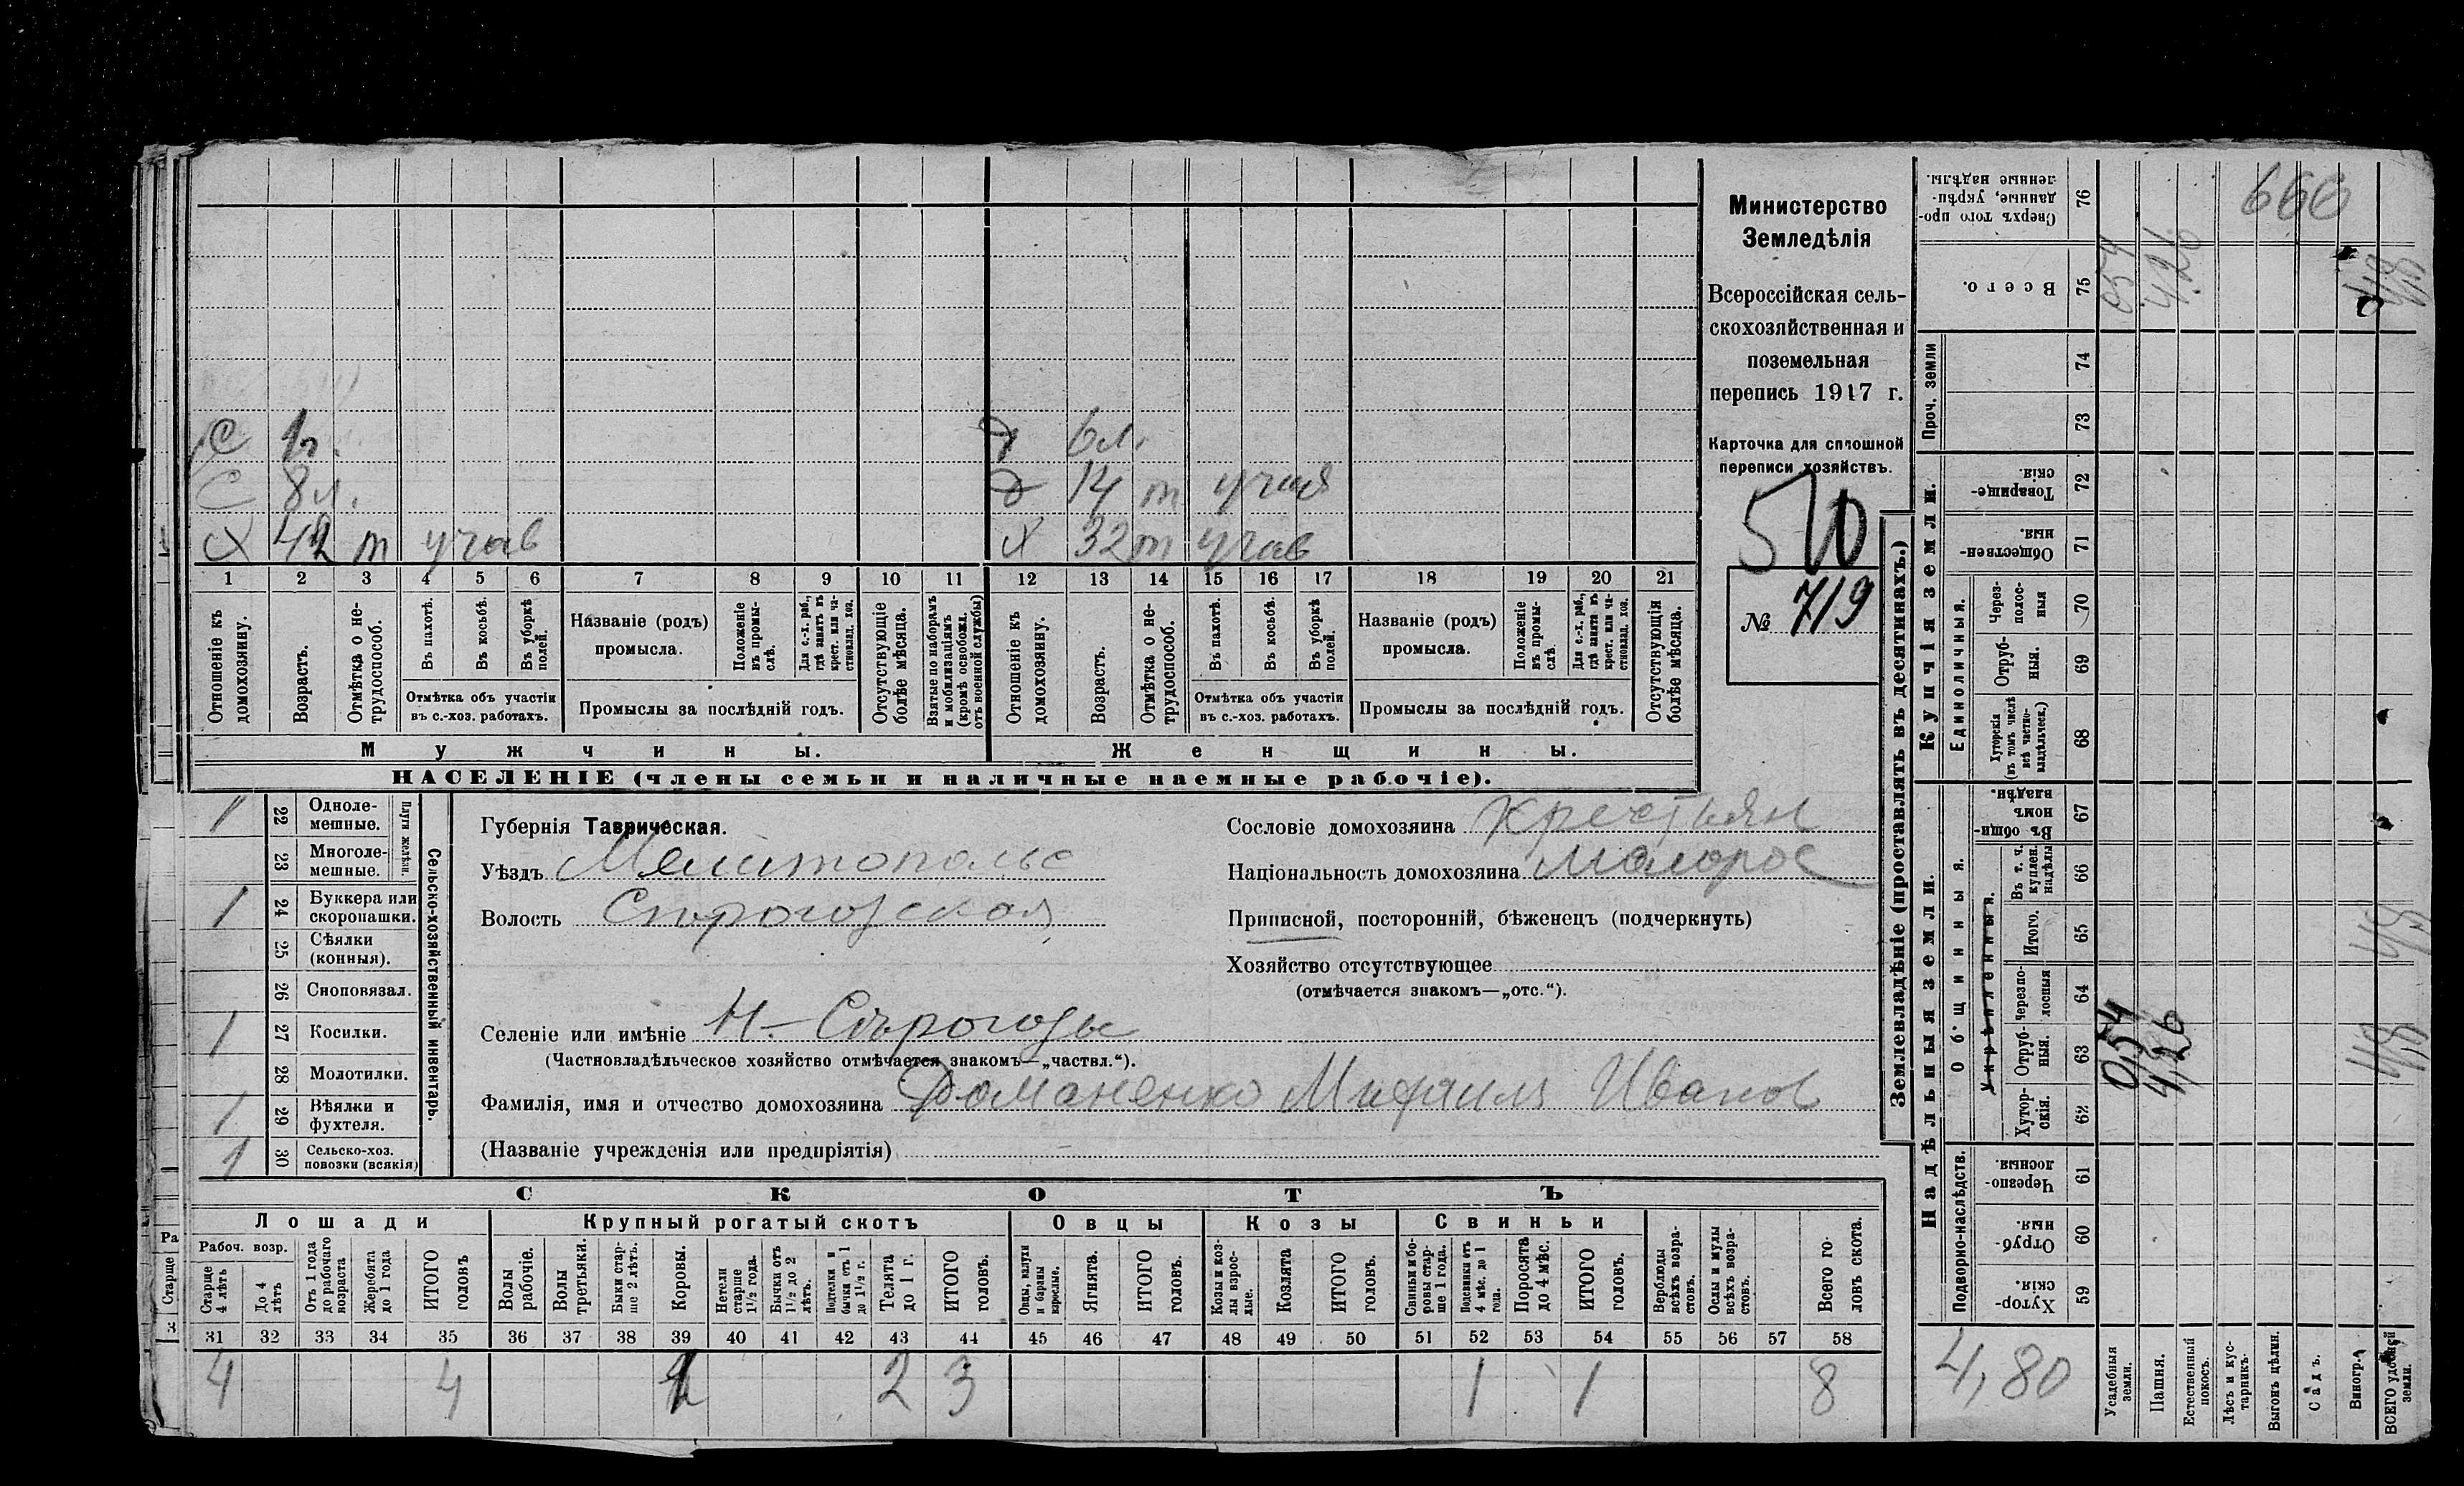 Министерство
Земледѣлія
Всероссійская сель-
скохозяйственная и
поземельная
перепись 1917 г.
Карточка для сплошной
переписи хозяйствъ.
510
№ 719
С 1г. Д 6 л.
С 8 л. Д 14 т участ
Х 42 т учав Х 32 т учав
1 2 3 4 5 6 7 8 9 10 11 12 13 14 15 16 17 18 19 20 21
Отношеніе къ домохозяину.
Возрастъ.
Отмѣтка о не-трудоспособ.
Въ пахотѣ.
Въ косьбѣ.
Въ уборкѣ полей.
Отмѣтка объ участіи
въ с.-хоз. работахъ.
Названіе (родъ)
промысла.
Положеніе въ промы-слѣ.
Для с.-х. раб., гдѣ занятъ въ крест. или ча-стновлад. хоз.
Промыслы за послѣдній годъ.
Отсутствующіе болѣе мѣсяца.
Взятые по наборамъ и мобилизаціямъ (кромѣ освобожд. отъ военной службы)
Отношеніе къ домохозяину.
Возрастъ.
Отмѣтка о не-трудоспособ.
Въ пахотѣ.
Въ косьбѣ.
Въ уборкѣ полей.
Отмѣтка объ участіи
въ с.-хоз. работахъ.
Названіе (родъ)
промысла.
Положеніе въ промы-слѣ.
Для с.-х. раб., гдѣ занята въ крест. или ча-стновлад. хоз.
Промыслы за послѣдній годъ.
Отсутствующія болѣе мѣсяца.
Мужчины. Женщины.
НАСЕЛЕНІЕ (члены семьи и наличные наемные рабочіе).
Сельско-хозяйственный инвентарь.
Плуги желѣзн.
1 22 Одноле-мешные.
23 Многоле-мешные.
1 24 Буккера или скоропашки.
25 Сѣялки (конныя).
26 Сноповязал.
1 27 Косилки.
28 Молотилки.
1 29 Вѣялки и фухтеля.
1 30 Сельско-хоз. повозки (всякія)
Губернія Таврическая.
Уѣздъ Мелитопольс
Волость Сѣрогозская
Селеніе или имѣніе Н-Сѣрогозы
(Частновладѣльческое хозяйство отмѣчается знакомъ—„частвл.“).
Фамилія, имя и отчество домохозяина Доманенко Михаилъ Иванов
(Названіе учрежденія или предпріятія)
Сословіе домохозяина крестьян
Національность домохозяина малорос
Приписной, посторонній, бѣженецъ (подчеркнуть)
Хозяйство отсутствующее
(отмѣчается знакомъ—„отс.“).
СКОТЪ
Лошади Крупный рогатый скотъ Овцы Козы Свиньи
Рабоч. возр.
Старше 4 лѣтъ
До 4 лѣтъ
Отъ 1 года до рабочаго возраста
Жеребята до 1 года
ИТОГО головъ
Волы рабочіе.
Волы третьяки.
Быки стар-ше 2 лѣтъ.
Коровы.
Нетели старше 1½ года.
Бычки отъ 1½ до 2 лѣтъ.
Подтелки и бычки отъ 1 до 1½ г.
Телята до 1 г.
ИТОГО головъ.
Овцы, валухи и бараны взрослые.
Ягнята.
ИТОГО головъ.
Козы и коз-лы взрос-лые.
Козлята
ИТОГО головъ.
Свиньи и бо-ровы стар-ше 1 года.
Подсвинки отъ 4 мѣс. до 1 года.
Поросята до 4 мѣс.
ИТОГО головъ.
Верблюды всѣхъ возра-стовъ.
Ослы и мулы всѣхъ возра-стовъ.
Всего го-ловъ скота.
31 32 33 34 35 36 37 38 39 40 41 42 43 44 45 46 47 48 49 50 51 52 53 54 55 56 57 58
4 4 1 2 3 1 1 8
Землевладѣніе (проставлять въ десятинахъ.)
Купчія земли.
Надѣльныя земли.
Проч. земли
Единоличныя.
Общинныя.
Укрѣпленныя.
Подворно-наслѣдств.
76 Сверхъ того про-данные, укрѣп-ленные надѣлы.
666
75 Всего.
0,54 4,26 4,8
74
73
72 Товарище-скія.
71 Обществен-ныя.
70 Через-полос-ныя
69 Отруб-ныя.
68 Хуторскія (въ томъ числѣ всѣ частно-владѣльческ.)
67 Въ общин-номъ владѣн.
66 Въ т. ч. куплен. надѣлы
65 Итого.
4,8
64 Черезпо-лосныя
63 Отруб-ныя.
0,54 4,26 4,8
62 Хутор-скія.
61 Черезпо-лосныя.
60 Отруб-ныя.
59 Хутор-скія.
4,80
Усадебныя земли.
Пашня.
Естественный покосъ.
Лѣсъ и кус-тарникъ.
Выгонъ цѣлин.
Садъ.
Виногр.
ВСЕГО удобной земли.
Ра
Старше